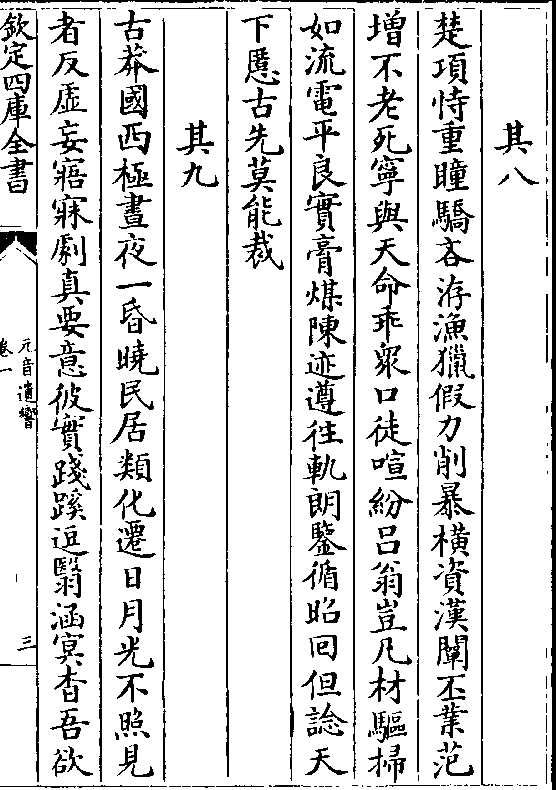 其八
楚項恃重瞳驕吝游漁獵假力削暴橫資漢闡丕業范
增不老死寧與天命乖衆口徒喧紛吕翁豈凡材驅掃
如流電平良實膏煤陳迹遵徃軌朗鑒循昭回但諗天
下慝古先莫能裁
其九
古莽國西極晝夜一昏曉民居類化遷日月光不照見
者反虚妄寤寐劇真要意彼實踐蹊逗翳涵冥杳吾欲
欽定四庫全書
元音遺響
卷一
三